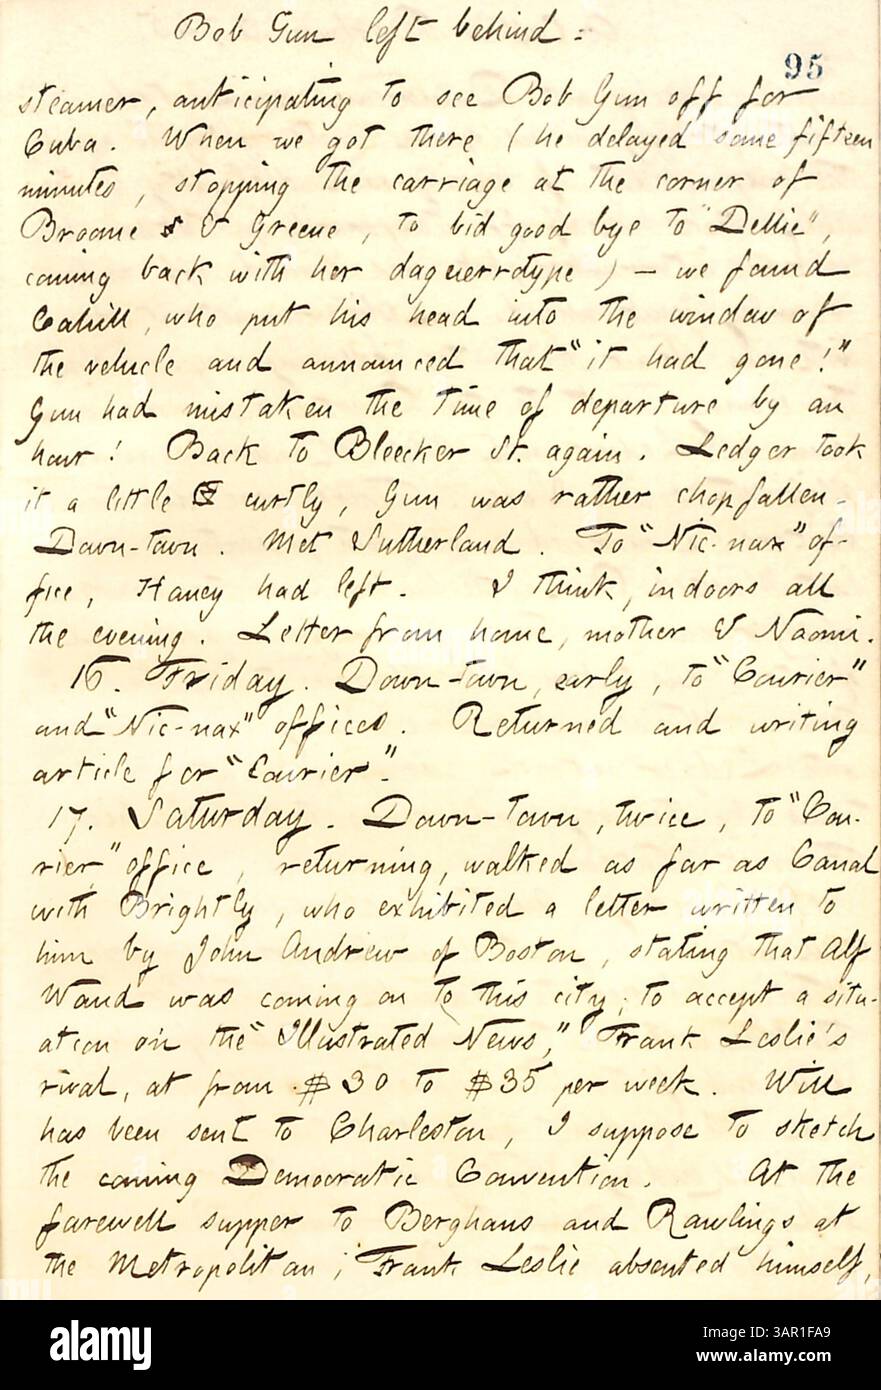 Bob Gun left behind:
95
steamer, anticipating to see Bob Gun off for
Cuba. When we got there (he delayed some fifteen
minutes, stopping the carriage at the corner of
Broome & Greene, to bid good bye to "Dellie",
coming back with her daguerrotype) — we found
Cahill, who put his head into the window of
the vehicle and announced that "it had gone!"
Gun had mistaken the time of departure by an
hour! Back to Bleecker St. again. Ledger took
it a little curtly, Gun was rather chopfallen.
Down-town. Met Sutherland. To "Nic-nax" of-
fice, Haney had left. I think, indoors all
the evening. Letter from home, mother & Naomi.
16. Friday. Down-town, early, to "Courier"
and "Nic-nax" offices. Returned and writing
article for "Courier".
17. Saturday. Down-town, twice, to "Cou-
rier" office, returning, walked as far as Canal
with Brightly, who exhibited a letter written to
him by John Andrew of Boston, stating that Alf
Waud was coming on to this city, to accept a situ-
ation on the "Illustrated News," Frank Leslie's
rival, at from $30 to $35 per week. Will
has been sent to Charleston, I suppose to sketch
the coming Democratic Convention. At the
farewell supper to Berghaus and Rawlings at
the Metropolitan, Frank Leslie absented himself,
alamy
Image ID: 3AR1FA9
www.alamy.com